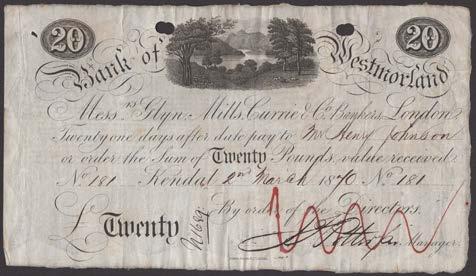 20 20
Bank of Westmorland
Mess.rs Glyn, Mills, Currie & Co. Bankers, London
Twenty one days after date pay to Mr Henry Johnson
or order the Sum of Twenty Pounds, value received
No. 181 Kendal 2nd March 1870 No. 181
By order of the Directors.
£ Twenty
Manager.